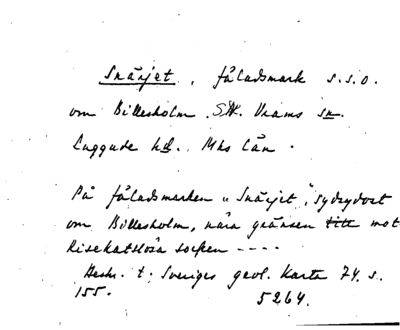 Snärjet, fäladsmark s.s.o.
om Billesholm. S. Vrams sn.
Luggude hd. Mhs län.
På fäladsmarken "Snärjet", sydsydost
om Billesholm, nära gränsen till mot
Risekatslösa socken ----
Beskr. t. Sveriges geol. Karta 74. s.
155.
5264.